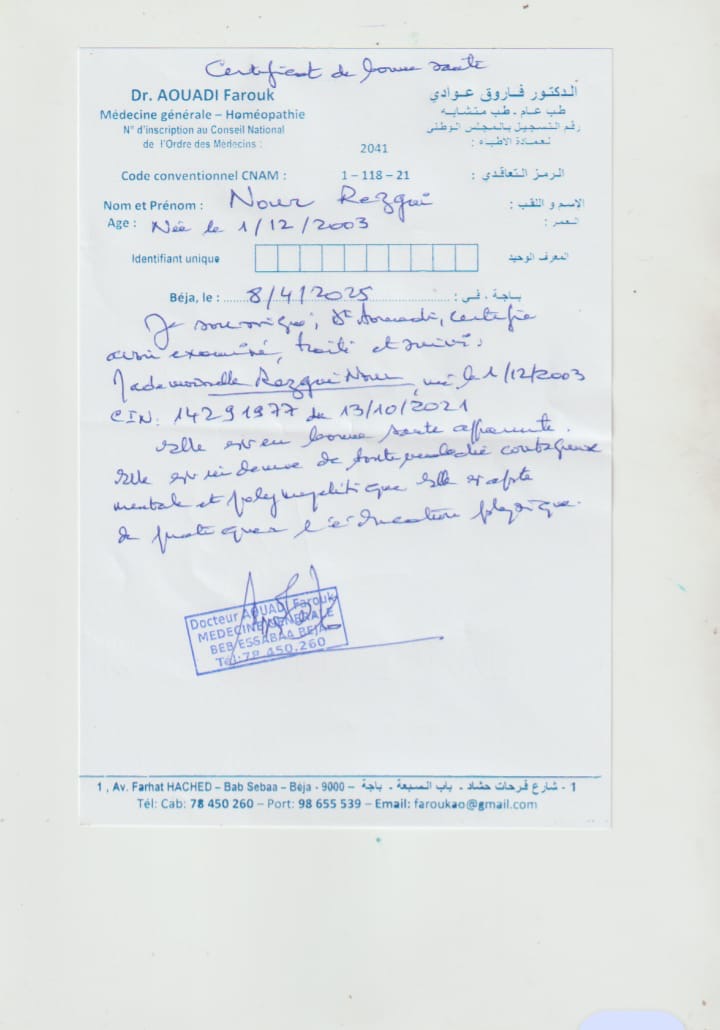 Certificat de bonne santé
Dr. AOUADI Farouk
الدكتور فاروق عوادي
Médecine générale – Homéopathie
طب عام . طب متشابه
N° d'inscription au Conseil National
رقم التسجيل بالمجلس الوطني
de l'Ordre des Médecins :
لعمادة الاطباء :
2041
Code conventionnel CNAM : 1 – 118 – 21 الرمز التعاقدي :
Nom et Prénom : Nour Rezgui الاسم و اللقب :
Age : Née le 1/12/2003 العمر :
Identifiant unique المعرف الوحيد
Béja, le : 8/4/2025 باجة ، في :
Je soussigné, Dr Aouadi, certifie
avoir examiné, traité et suivi :
Mademoiselle Rezgui Nour, né le 1/12/2003
CIN: 14291977 du 13/10/2021
Elle est en bonne santé apparente.
Elle est indemne de toute maladie contagieuse
mentale et Elle est apte
de pratiquer l'éducation physique.
Docteur AOUADI Farouk
MEDECINE GENERALE
BEB ESSABAA BEJA
Tél: 78.450.260
1 , Av. Farhat HACHED – Bab Sebaa – Béja - 9000 – 1 - شارع فرحات حشاد . باب السبعة . باجة
Tél: Cab: 78 450 260 – Port: 98 655 539 – Email: faroukao@gmail.com